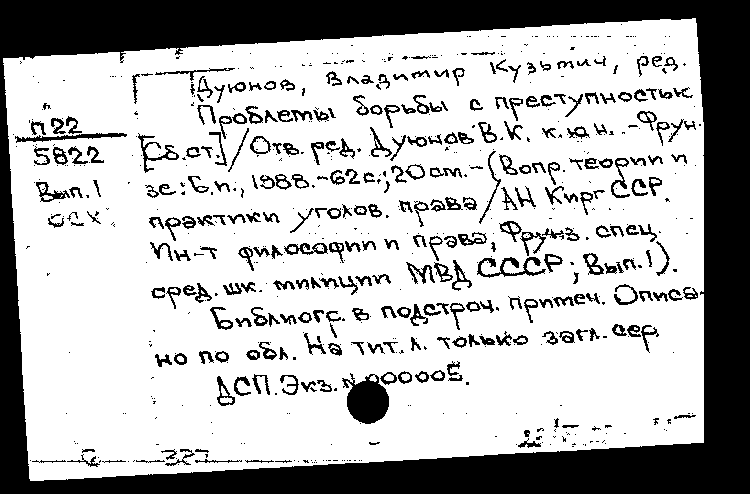 Дуюнов, Владимир Кузьмич, ред.
Проблемы борьбы с преступностью
[Сб. ст.] / Отв. ред. Дуюнов В.К. к.ю.н. - Фрун-
зе: Б.и., 1988. - 62 с.; 20 см. - (Вопр. теории и
практики уголов. права / АН Кирг ССР.
Ин-т философии и права, Фрунз. спец.
сред. шк. милиции МВД СССР; Вып. 1).
Библиогр. в подстроч. примеч. Описа-
но по обл. На тит. л. только загл. сер.
ДСП. Экз. N 000005.
П22
5822
Вып. 1
ОСХ
6 327